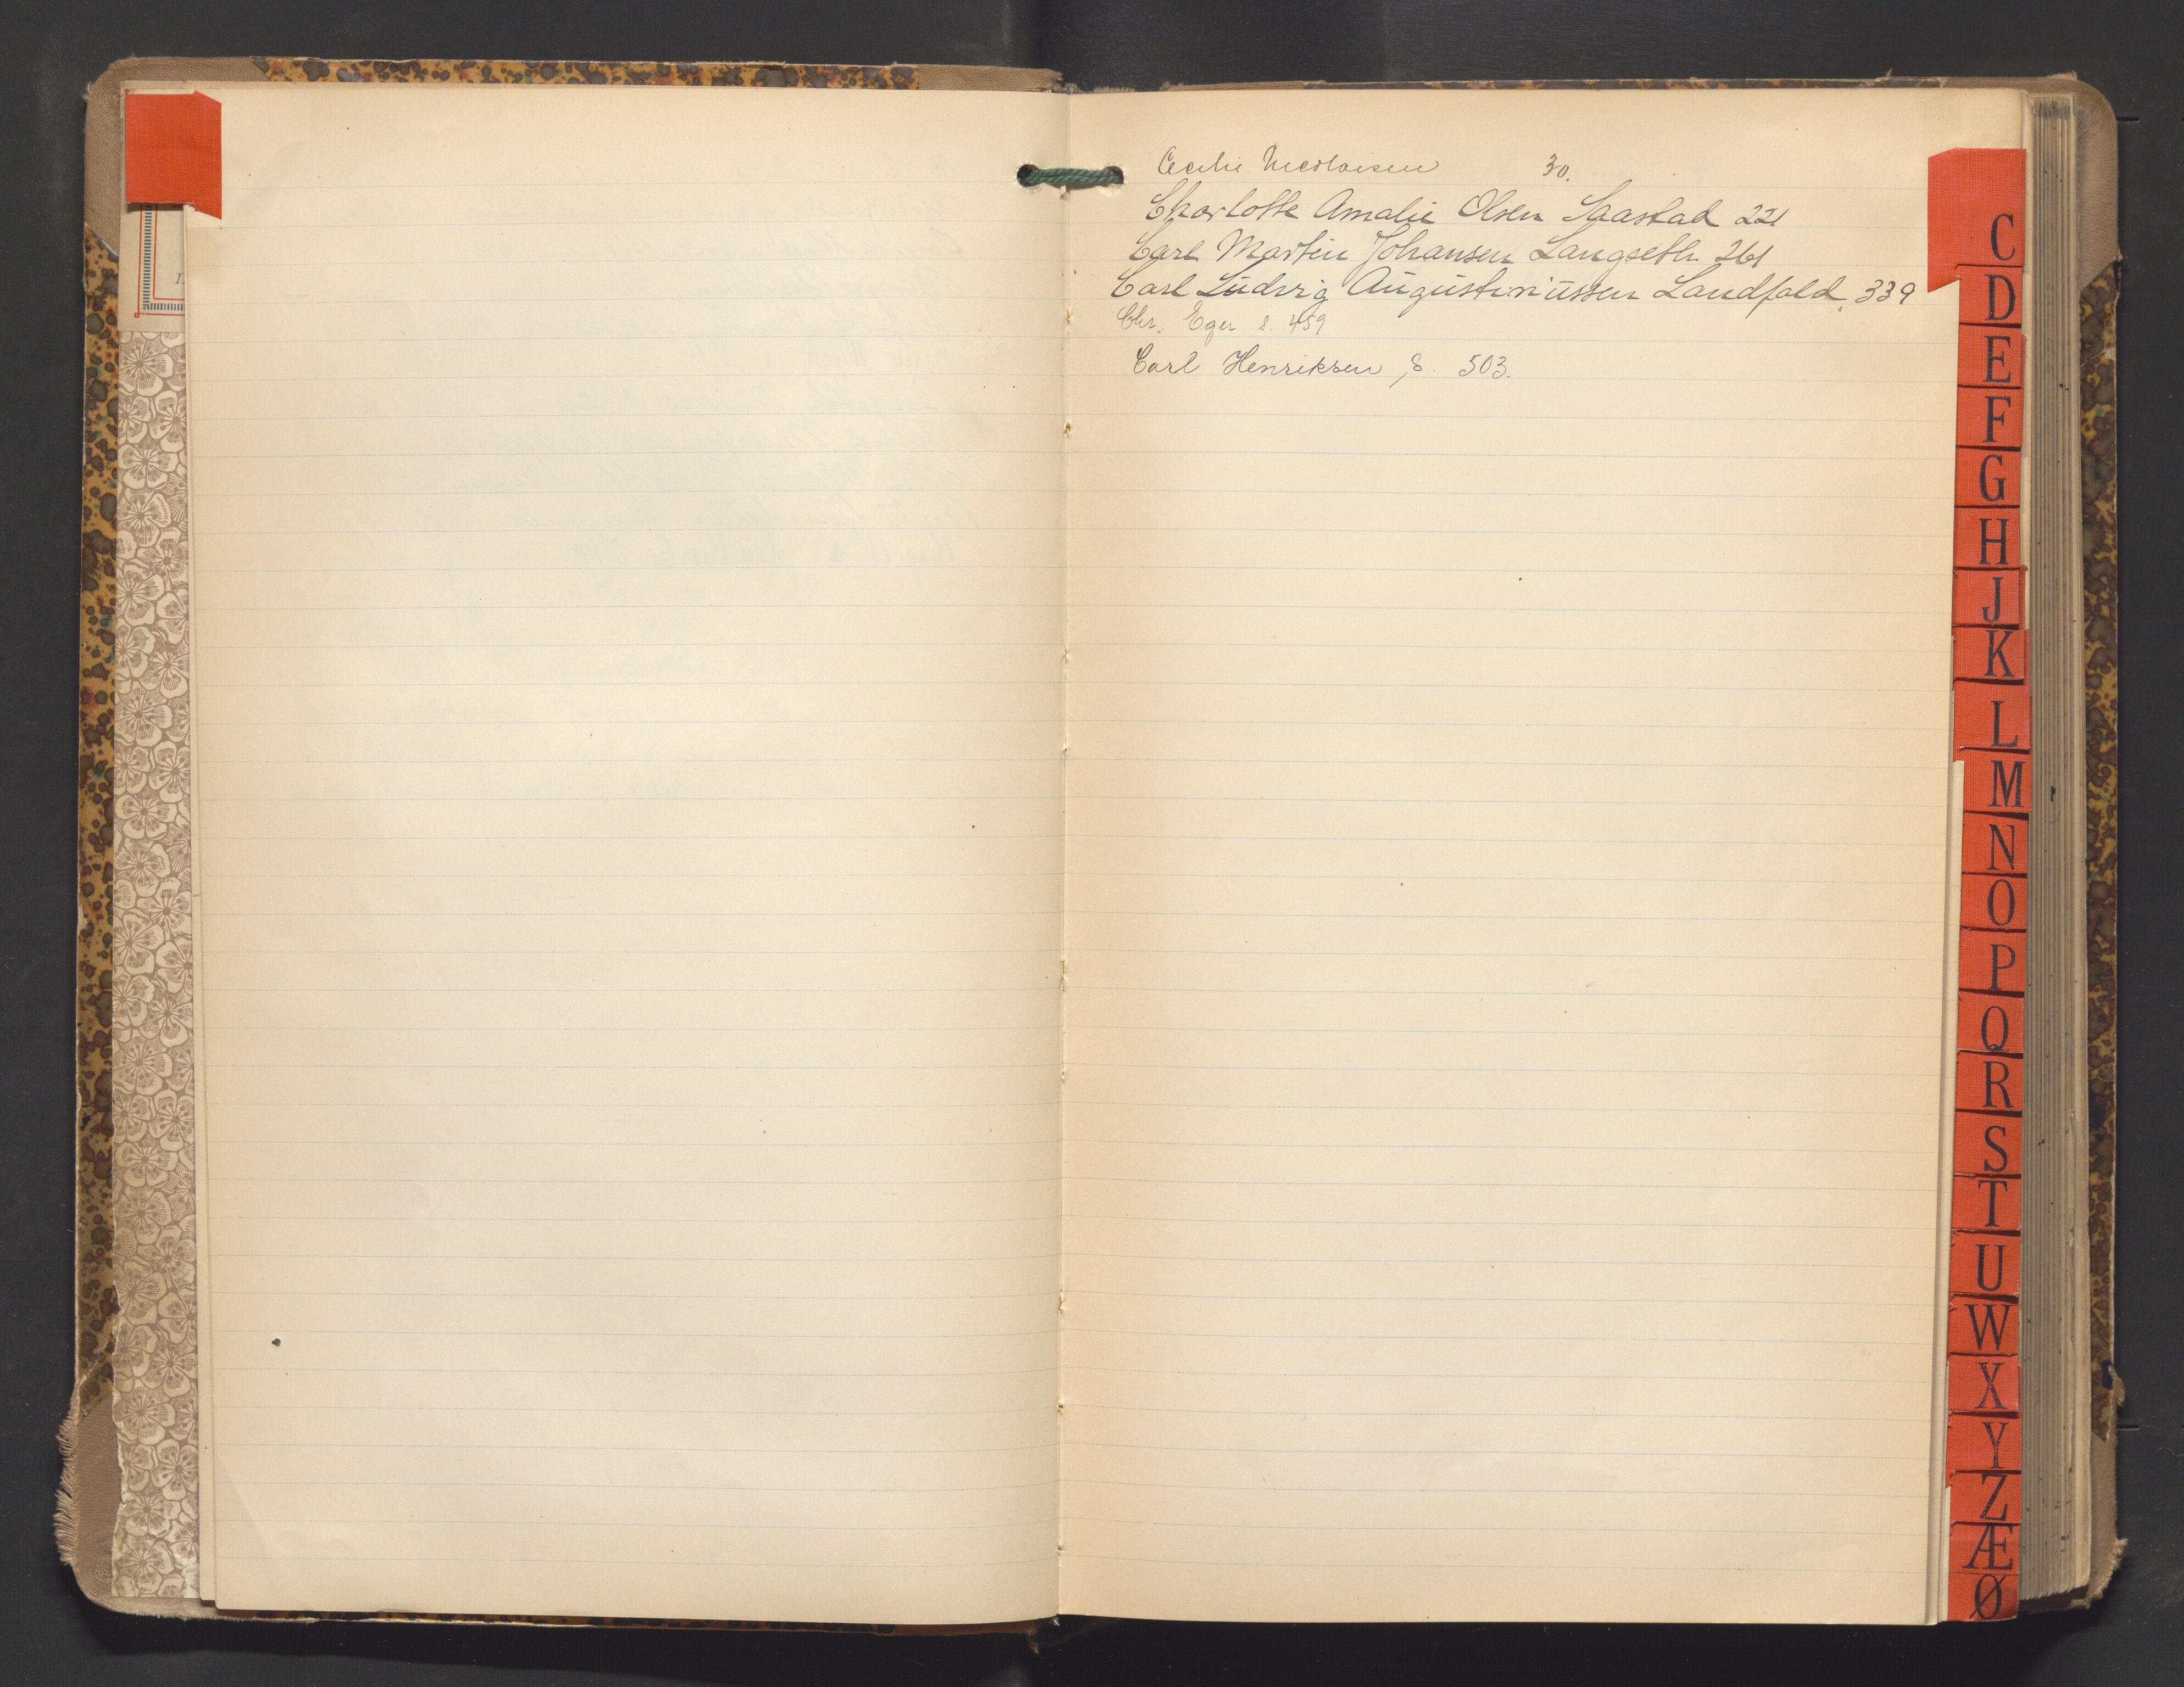 Cecilie Nicolaisen 30.
Charlotte Amalie Olsen Saastad 221
Carl Martin Johansen Langseth 261
Carl Ludvig Augustinussen Landfald. 339
Chr. Eger s. 459
Carl Henriksen S. 503.
C
D
E
F
G
H
J
K
L
M
N
O
P
Q
R
S
T
U
W
X
Y
Z
Æ
Ø